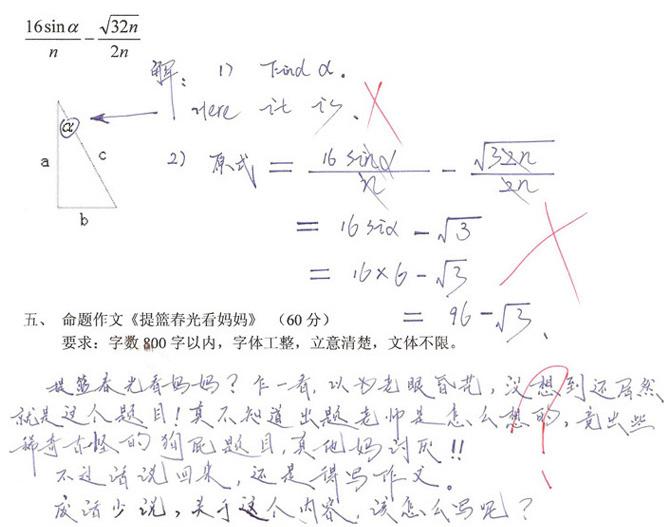 16sinα/n − √32n/2n
解: 1) Find α.
Here it is.
α
a
c
b
2) 原式 = 16 sinα/n − √32n/2n
= 16 siα − √3
= 16×6 − √3
= 96 − √3.
五、 命题作文《提篮春光看妈妈》 (60 分)
要求：字数 800 字以内，字体工整，立意清楚，文体不限。
提篮春光看妈妈？乍一看，以为老眼昏花，没想到还居然
就是这个题目！真不知道出题老师是怎么想的，竟出些
稀奇古怪的狗屁题目，真他妈讨厌!!
不过话说回来，还是得写作文。
废话少说，关于这个内容，该怎么写呢？